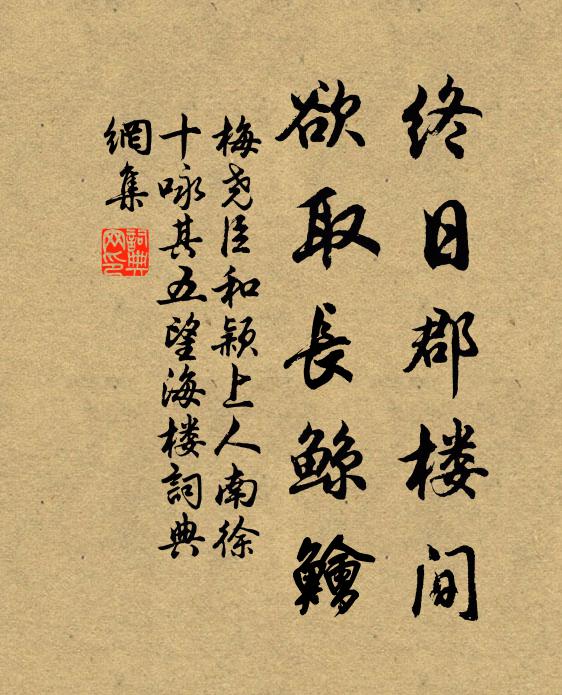 终日郡楼间
欲取長鲸鱠
梅尧臣和颍上人南徐
十咏其五望海楼詞典
網集
詞典
网印